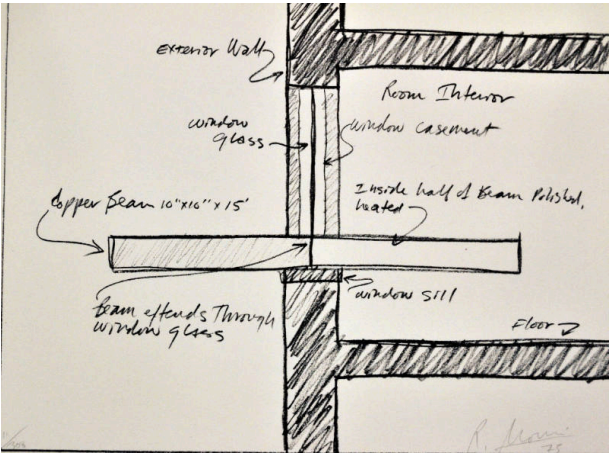 Exterior Wall
Room Interior
window
glass
window casement
Copper Beam 10"x10" x 15'
Inside half of Beam Polished,
heated
Beam extends Through
window glass
window sill
Floor
R. Morris